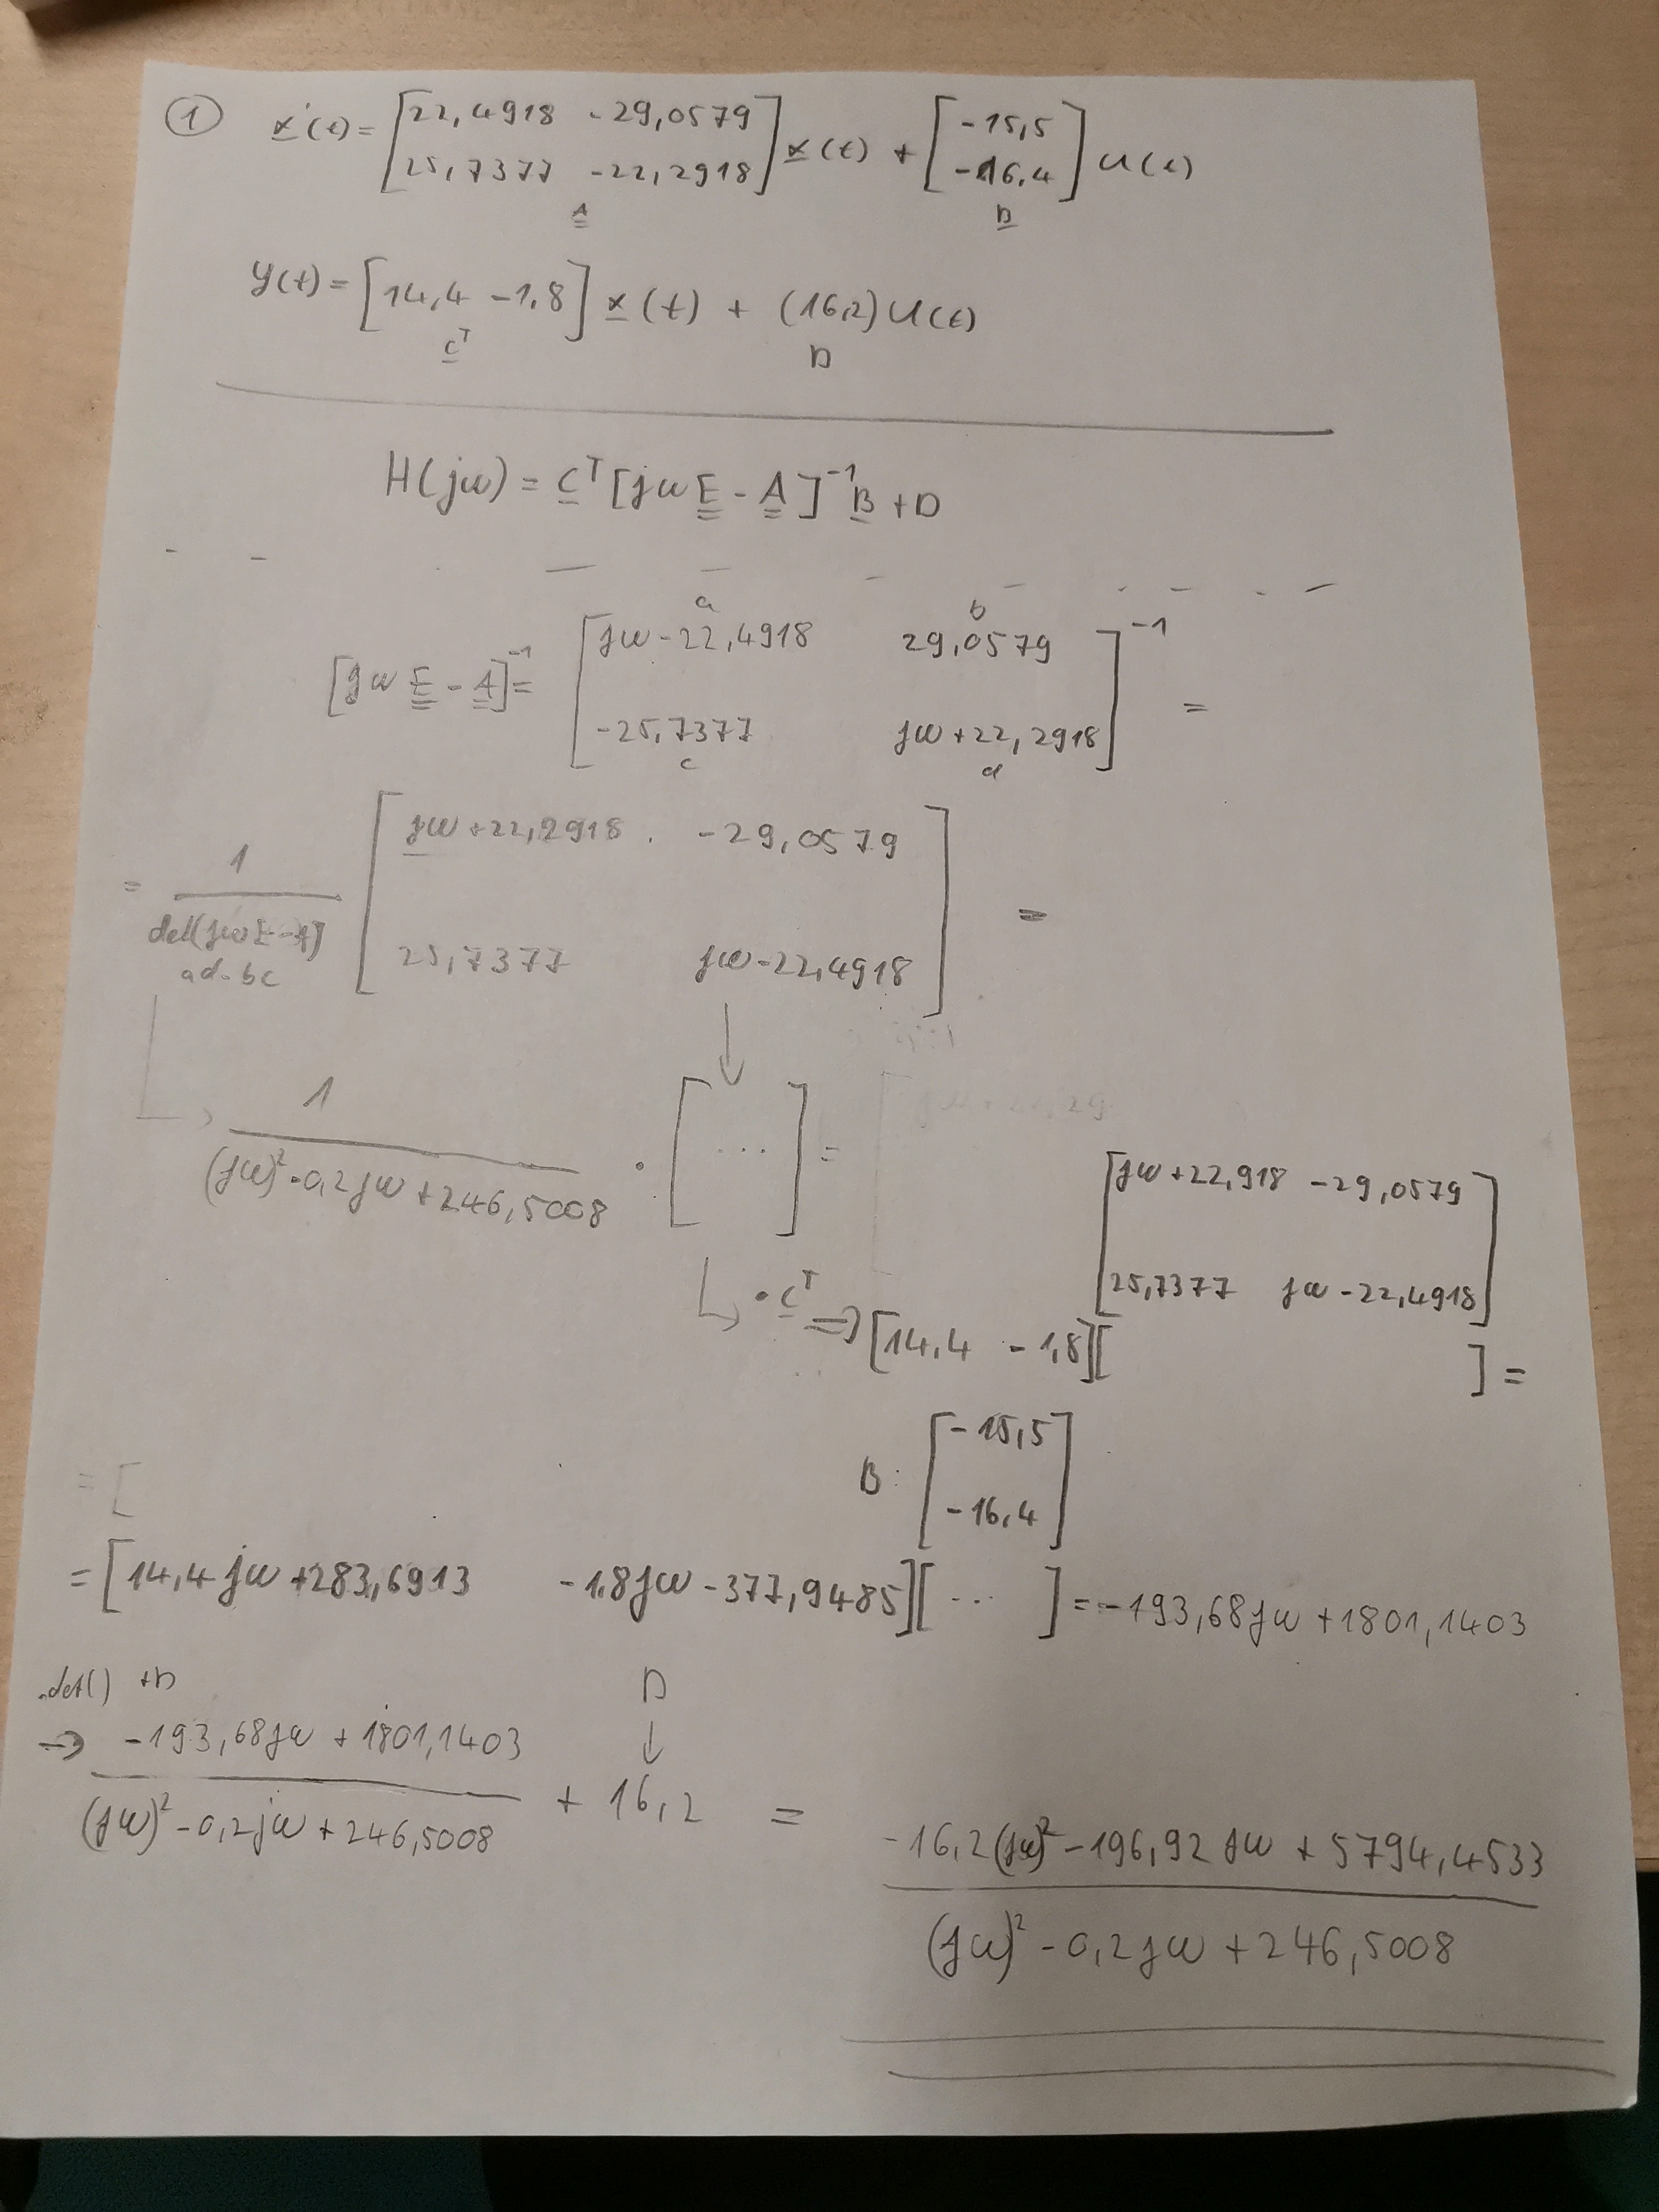 ① ẋ(t) = [22,4918 -29,0579
25,7377 -22,2918] x(t) + [-15,5
-16,4] u(t)
A B
y(t) = [14,4 -1,8] x(t) + (16,2) u(t)
C^T D
H(jω) = C^T [jω E - A]^-1 B + D
a b
[jω E - A]^-1 = [jω-22,4918 29,0579
-25,7377 jω+22,2918]^-1 =
c d
= 1 / det(jωE-A) [jω+22,2918 -29,0579
25,7377 jω-22,4918] =
ad-bc
1 / ((jω)²-0,2jω+246,5008) · [...] =
[jω+22,918 -29,0579
25,7377 jω-22,4918]
· C^T ⇒ [14,4 -1,8][ ] =
B: [-15,5
-16,4]
= [
= [14,4jω+283,6913 -1,8jω-377,9485][... ] = -193,68jω+1801,1403
·det() +D D
→ (-193,68jω+1801,1403) / ((jω)²-0,2jω+246,5008) + 16,2 = (-16,2(jω)²-196,92jω+5794,4533) / ((jω)²-0,2jω+246,5008)